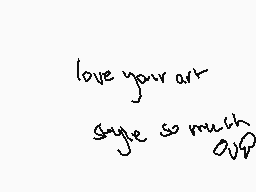 love your art
style so much
OvO